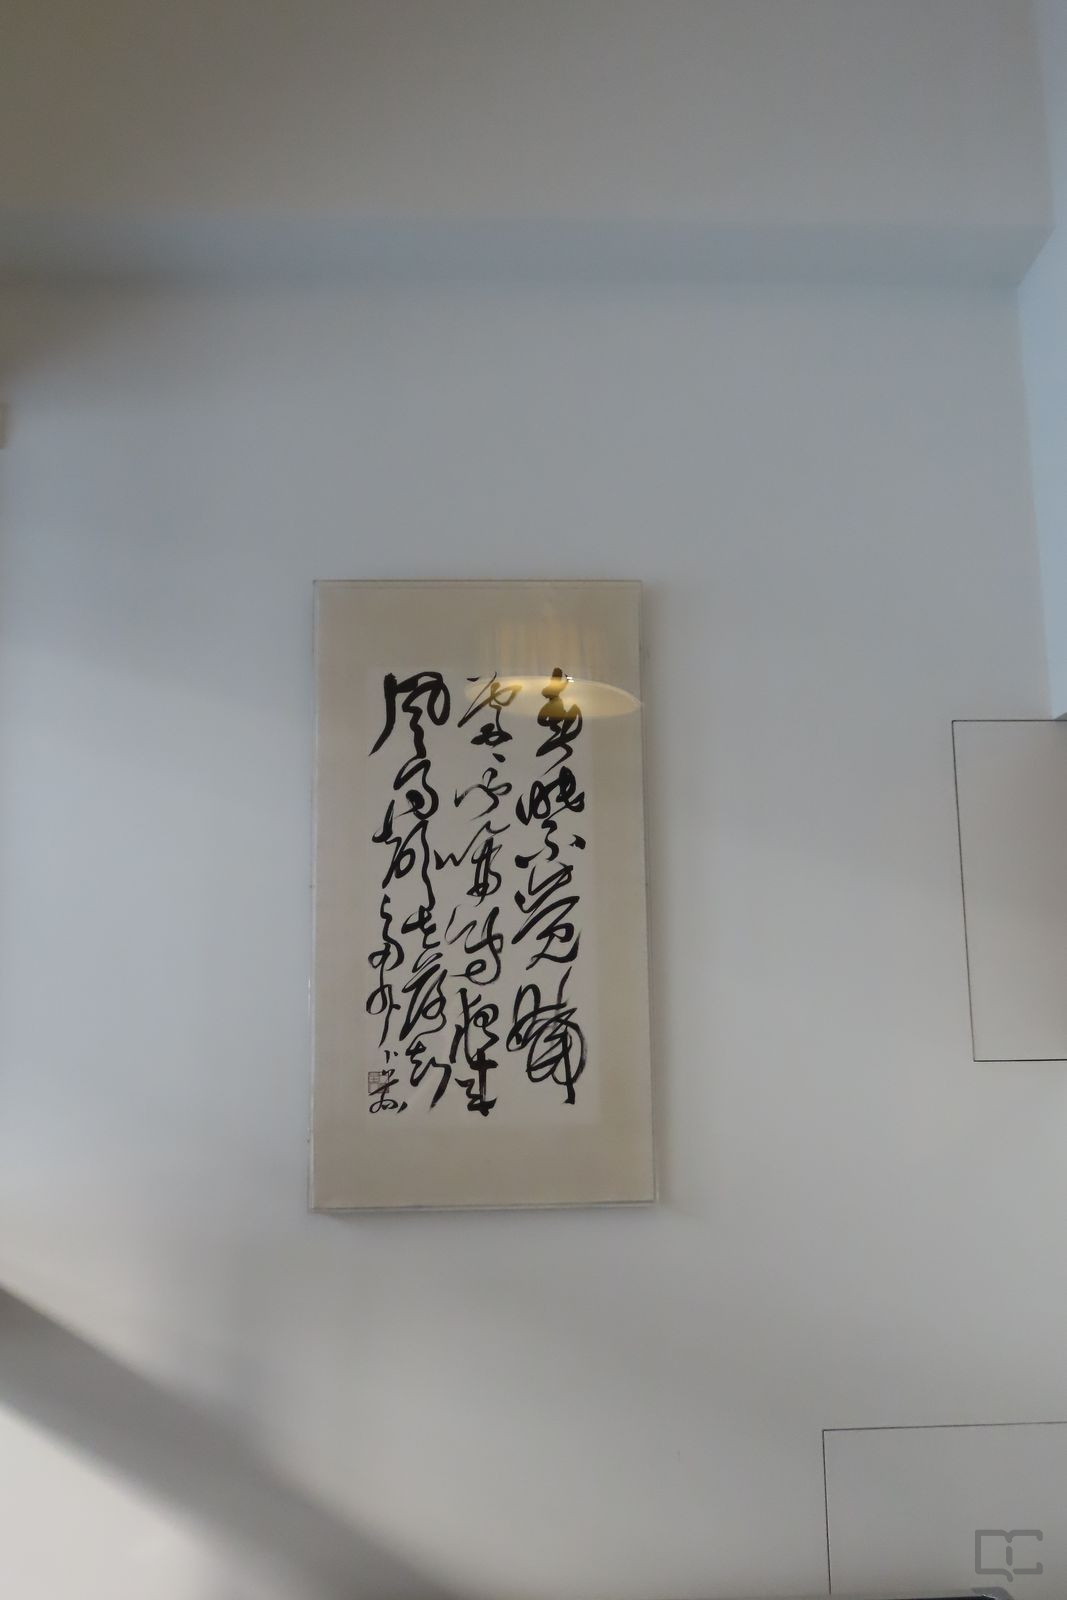 春眠不覺曉
處處聞啼鳥夜來
風雨聲花落知
多少